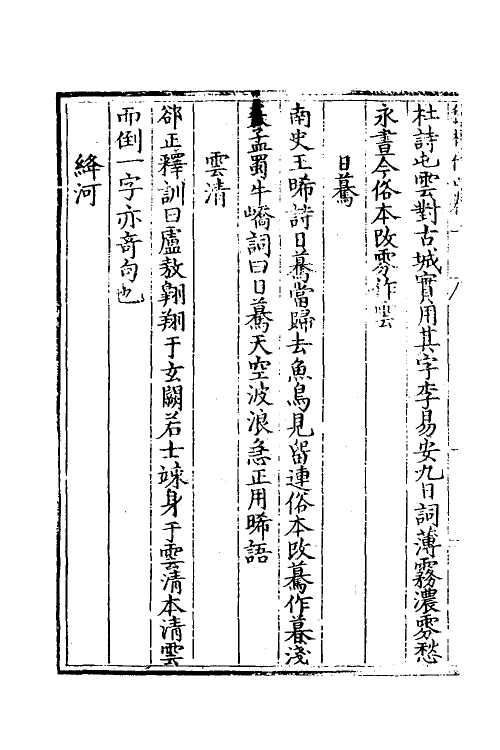 杜詩屯雲對古城實用其字李易安九日詞薄霧濃雰愁
永晝今俗本改雰作雲
日騖
南史王晞詩日騖當歸去魚鳥見留連俗本改騖作暮淺
矣孟蜀牛嶠詞曰日騖天空波浪急正用晞語
雲清
郤正釋訓曰盧敖翺翔于玄闕若士竦身于雲清本清雲
而倒一字亦竒句也
絳河